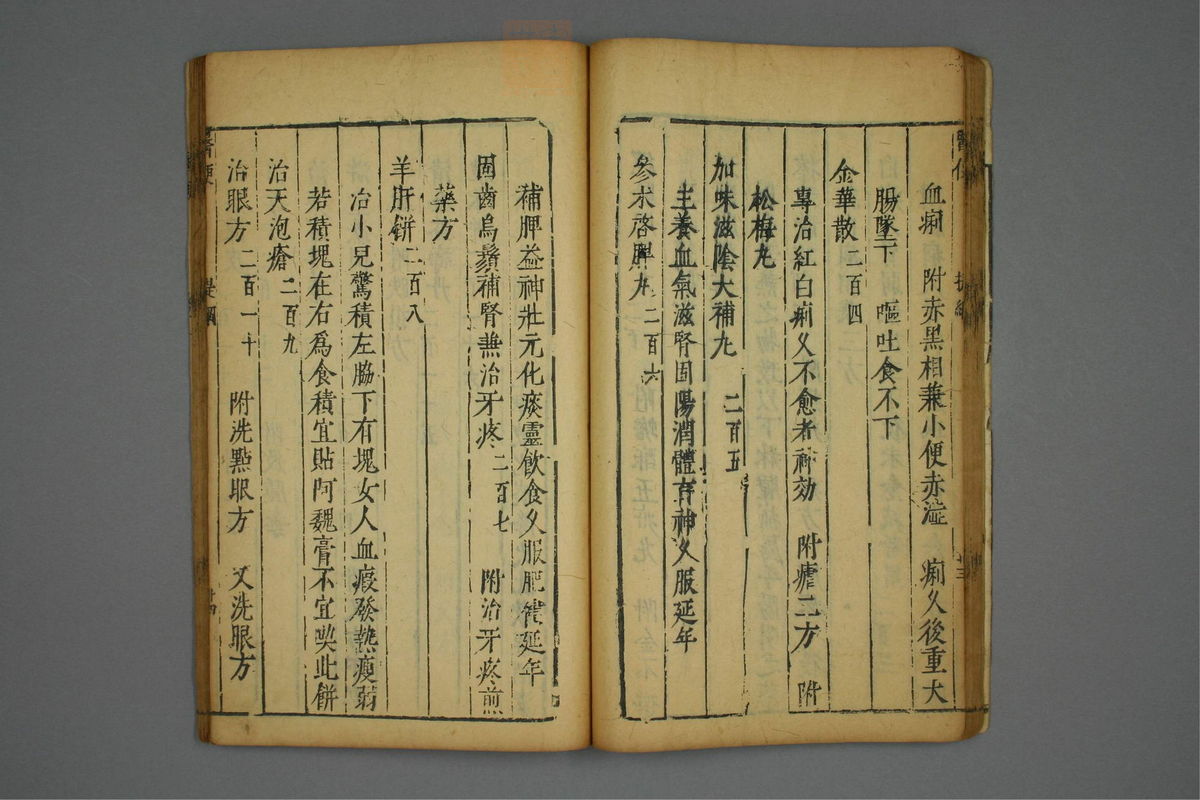 醫便
提綱
十三
血痢 附赤黑相兼小便赤澁 痢久後重大
腸墜下 嘔吐食不下
金華散 二百四
專治紅白痢久不愈者神効 附瘧二方 附
松梅丸
加味滋陰大補丸 二百五
主養血氣滋腎固陽潤體育神久服延年
參朮啓脾丸 二百六
補脾益神壯元化痰靈飲食久服肥健延年
固齒烏鬚補腎兼治牙疼 二百七 附治牙疼煎
藥方
羊肝餅 二百八
治小兒驚積左脇下有塊女人血瘕發熱瘦弱
若積塊在右為食積宜貼阿魏膏不宜喫此餅
治天泡瘡 二百九
治眼方 二百一十 附洗點眼方 又洗眼方
醫便
提綱
十四